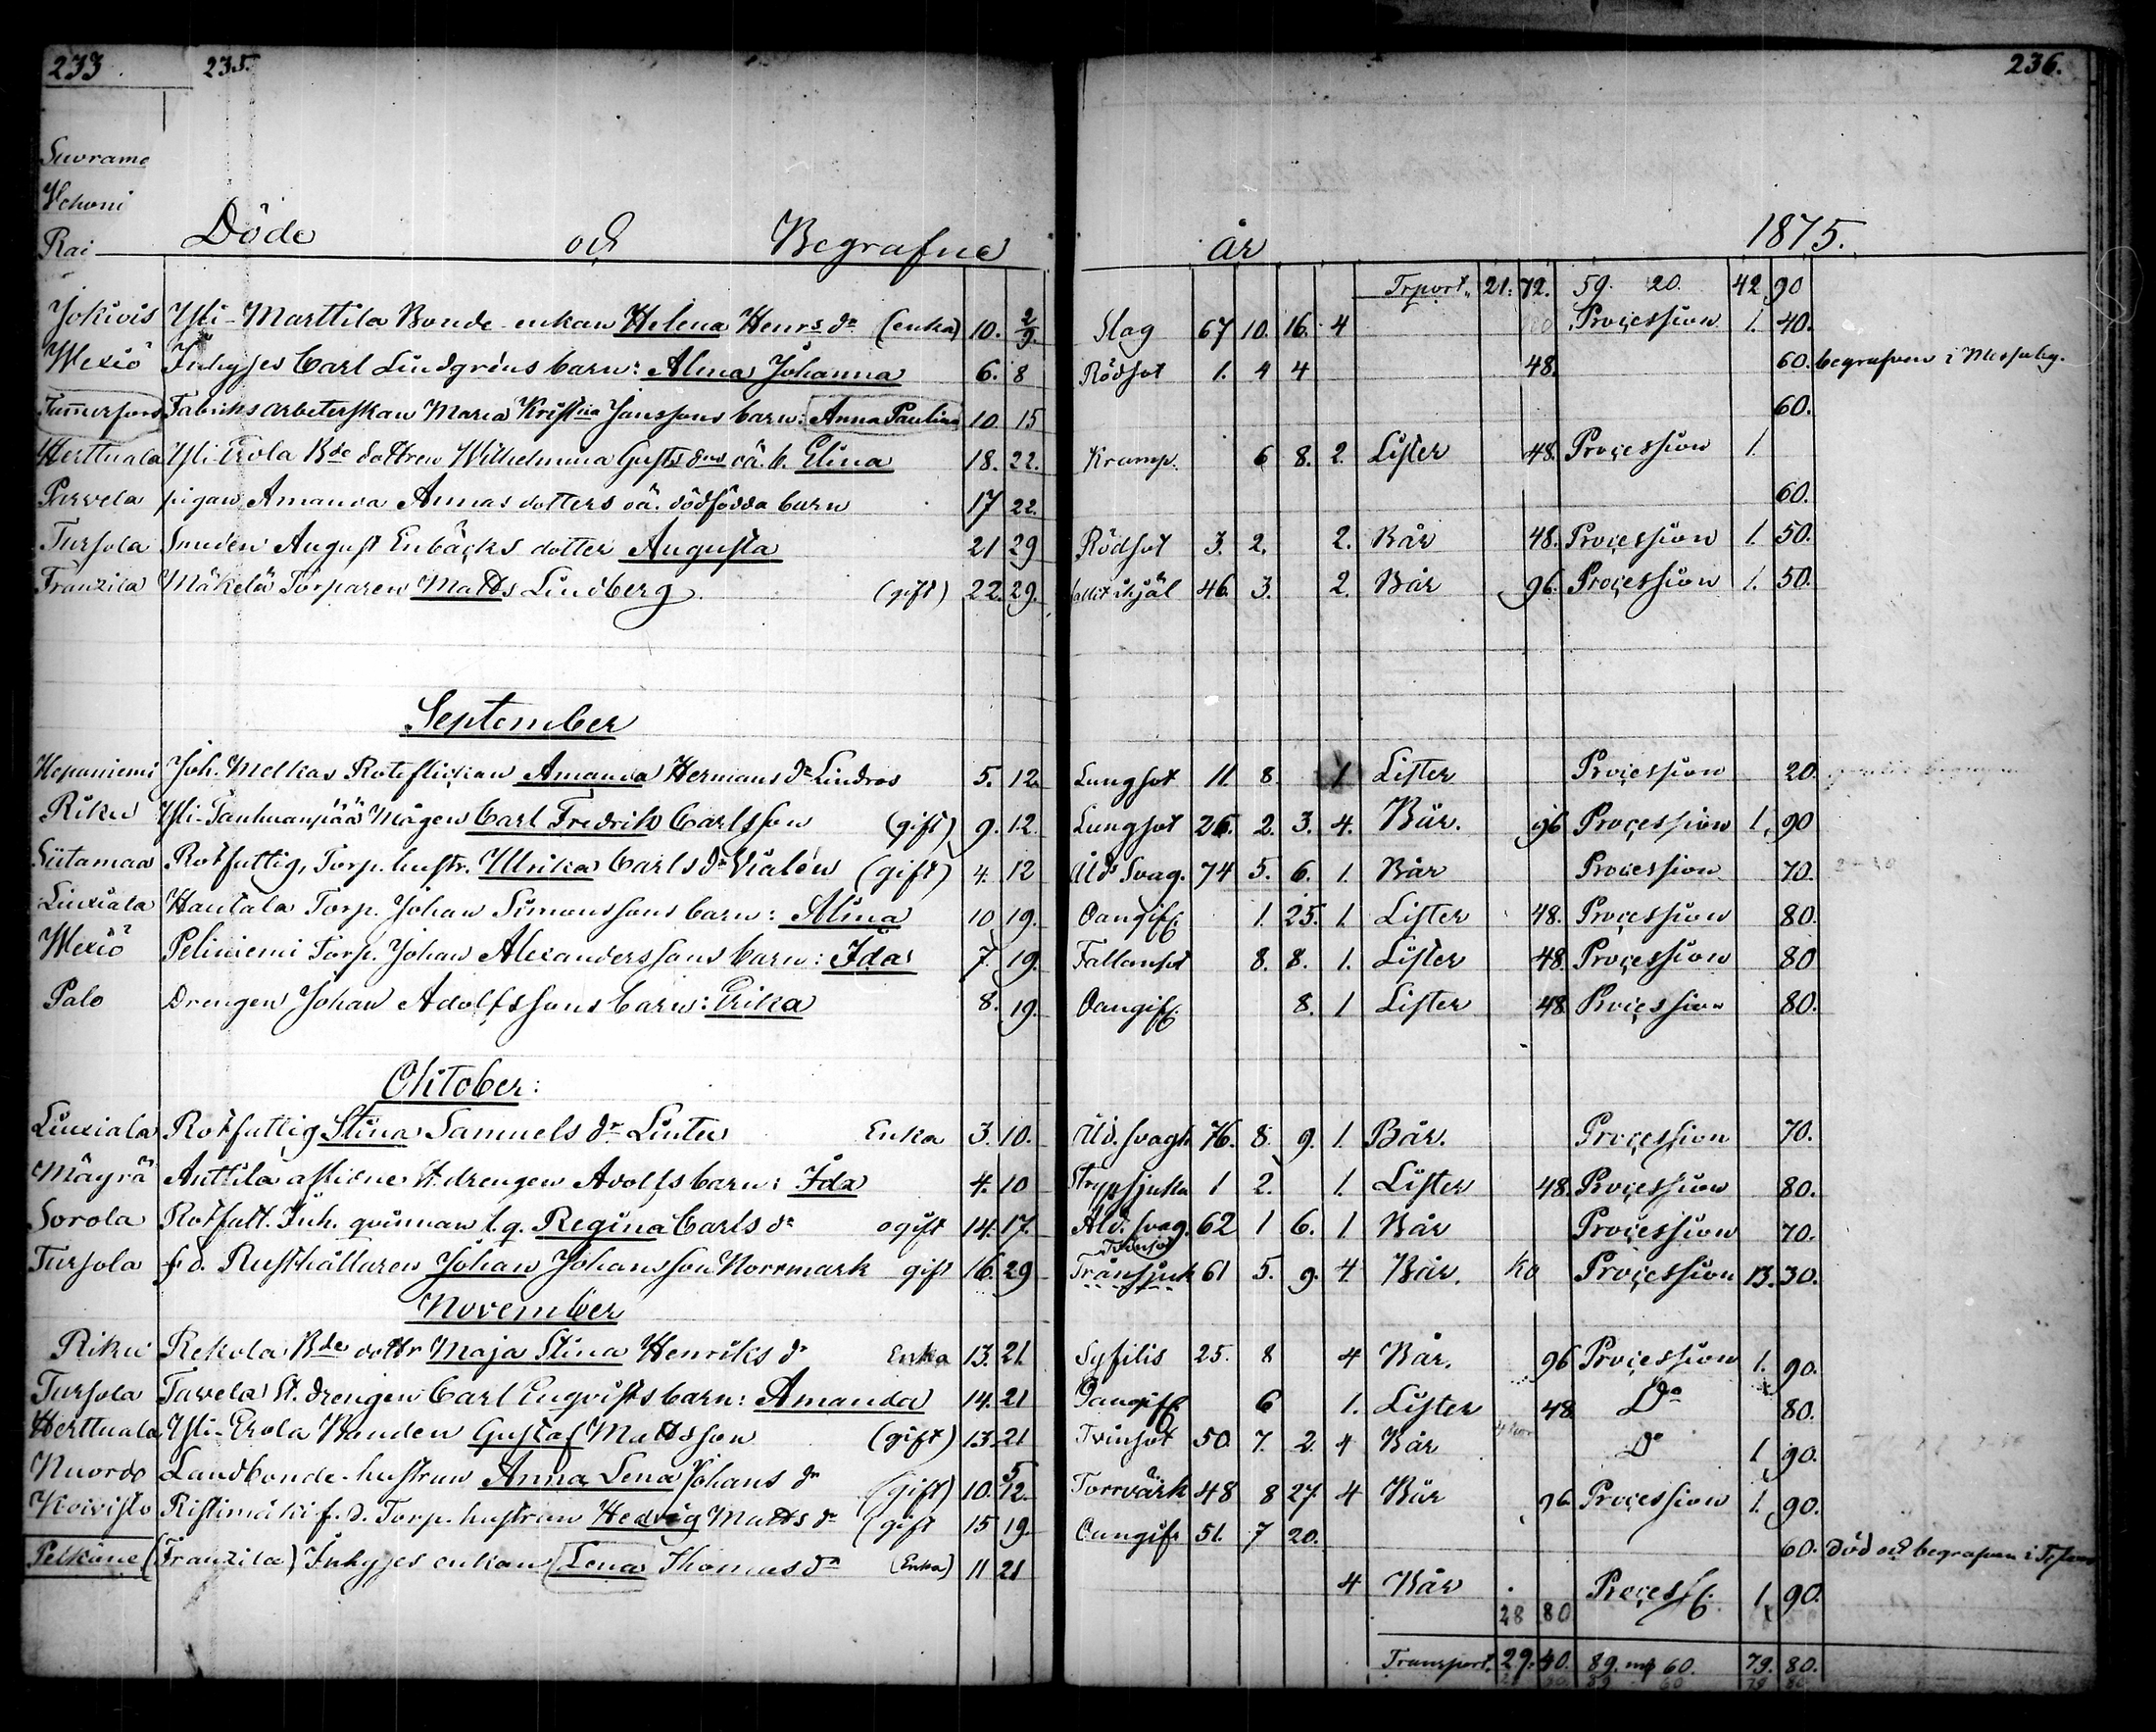 233 235. 236.
Suorame
Vehoni
Rai Döde och Begrafne år 1875.
Trport. 21. 72. 59. 20. 42 90
Jokivis Yli-Marttila Bonde enkan Helena Henrs dr (enka) 10. 2/9. Slag 67 10. 16. 4 Procession 1. 40.
Wexiö Inhyses Carl Lindgrens barn: Alma Johanna 6. 8 Rödsot 1. 4 4 48. 60. begrafven i Messuby.
Tam̄erfors Fabriks arbeterskan Maria Kristina Janssons barn: Anna Paulina 10 15 60.
Herttuala Yli-Erola Bde dottren Wilhelmina Gustsdrs oä. b. Elina 18. 22. Kramp. 6 8. 2. Lister 48. Procession 1.
Parvela pigan Amanda Annas dotters oä. dödfödda barn 17 22. 60.
Tursola Smeden August Enbäcks dotter Augusta 21 29 Rödsot 3. 2. 2. Bår 48. Procession 1. 50.
Franzila Mäkelä Torparen Matts Lindberg (gift) 22. 29. fallit ihjäl 46. 3. 2. Bår 96. Procession 1. 50.
September
Hepaniemi Joh. Melkas Roteflickan Amanda Hermans dr Lindros 5. 12. Lungsot 11. 8. 1 Lister Procession 20.
Riku Yli-Tanhuanpää Mågen Carl Fredrik Carlsson (gift) 9. 12. Lungsot 26. 2. 3. 4. Bår. 96 Procession 1. 90
Siitamaa Rotfattig, Torp. hustr. Ulrika Carls dr Vialén (gift) 4. 12 Åld. Svag. 74 5. 6. 1. Bår Procession 70.
Liuxiala Hautala Torp. Johan Simonssons barn: Alina 10 19. Oangif. 1. 25. 1. Lister 48. Procession 80.
Wexiö Peliniemi Torp. Johan Alexanderssons barn: Ida 7. 19. Fallansot 8. 8. 1. Lister 48. Procession 80
Palo Drengen Johan Adolfssons barn: Erika 8. 19. Oangif. 8. 1 Lister 48 Procession 80.
Oktober:
Liuxiala Rotfattig Stina Samuels dr Linter Enka 3. 10. Åld. svagh 76. 8. 9. 1. Bår. Procession 70.
Mäyrä Anttila afskedne St. drengen Adolfs barn: Ida 4. 10 Strypsjuka 1 2. 1. Lister 48. Procession 80.
Sorola Rotfatt. Inh. qvinnan l. q. Regina Carls dr ogift 14. 17. Åld. svag. 62 1 6. 1 Bår Procession 70.
Tursola f. d. Rusthållaren Johan Johansson Norrmark gift 16. 29 Trånsjuk Tvinsot 61 5. 9. 4 Bår. ko Procession 13. 30.
November
Riku Rekola Bde dottr Maja Stina Henriks dr Enka 13. 21. Syfilis 25. 8 4 Bår. 96 Procession 1. 90.
Tursola Tavela St. drengen Carl Enqvists barn: Amanda 14. 21 Oangif. 6 1. Lister 48 Do 80.
Herttuala Yli-Erola Bonden Gustaf Mattsson (gift) 13. 21 Tvinsot 50. 7. 2. 4 Bår Do 1 90.
Nuordo Landbonde-hustrun Anna Lena Johans dr (gift) 10. 5/12. Torrvärk 48 8 27. 4 Bår 96 Procession 1. 90.
Koivisto Ristimäki f. d. Torp. hustrun Hedvig Matts dr (gift 15 19. Oangif. 51. 7 20.
Pelkäne (Franzila) Inhyses enkan Lena Thomas dr (Enka) 11 21 60. död och begrafven i
4 Bår Process. 1. 90.
28 80
Transport. 29. 40. 89. mk 60. 79. 80.